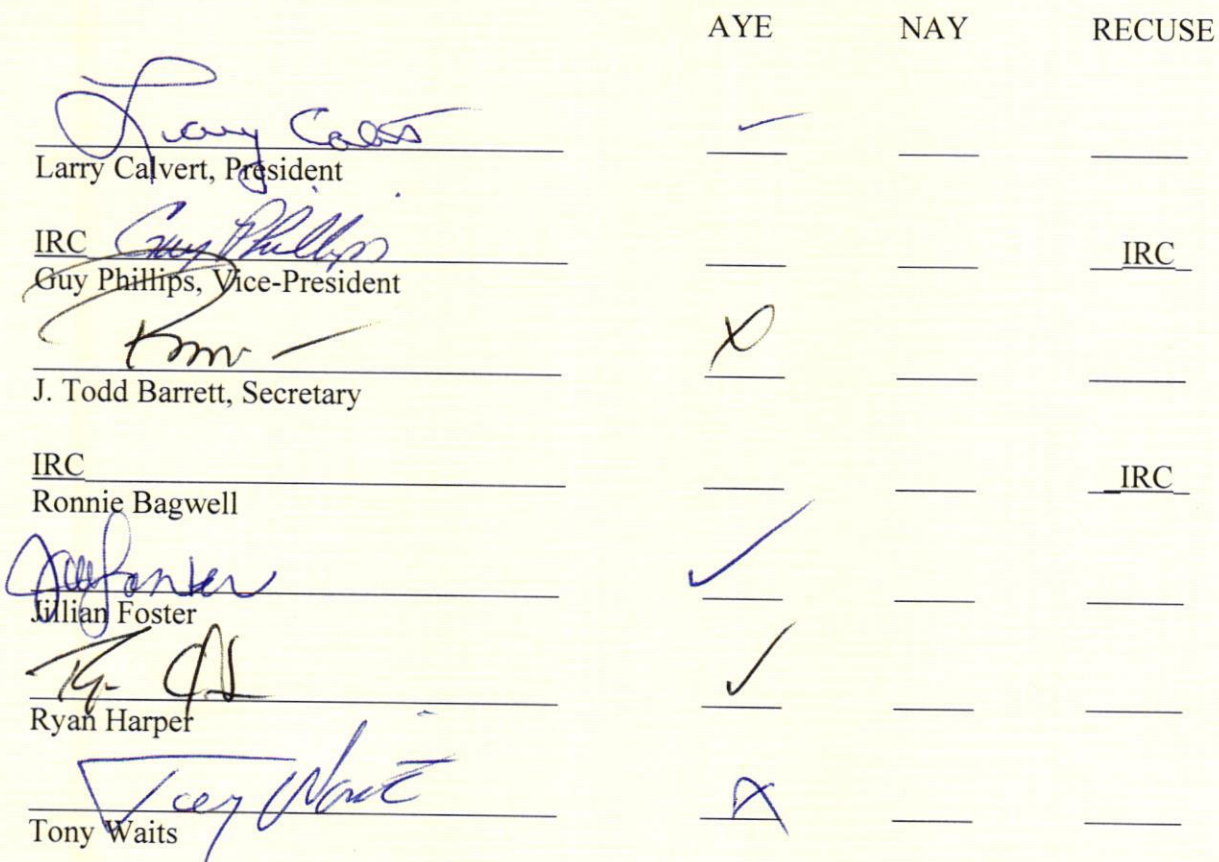 AYE NAY RECUSE
Larry Calvert
Larry Calvert, President
IRC Guy Phillips IRC
Guy Phillips, Vice-President
X
J. Todd Barrett, Secretary
IRC IRC
Ronnie Bagwell
Jillian Foster
Ryan Harper
Tony Waits X
Tony Waits